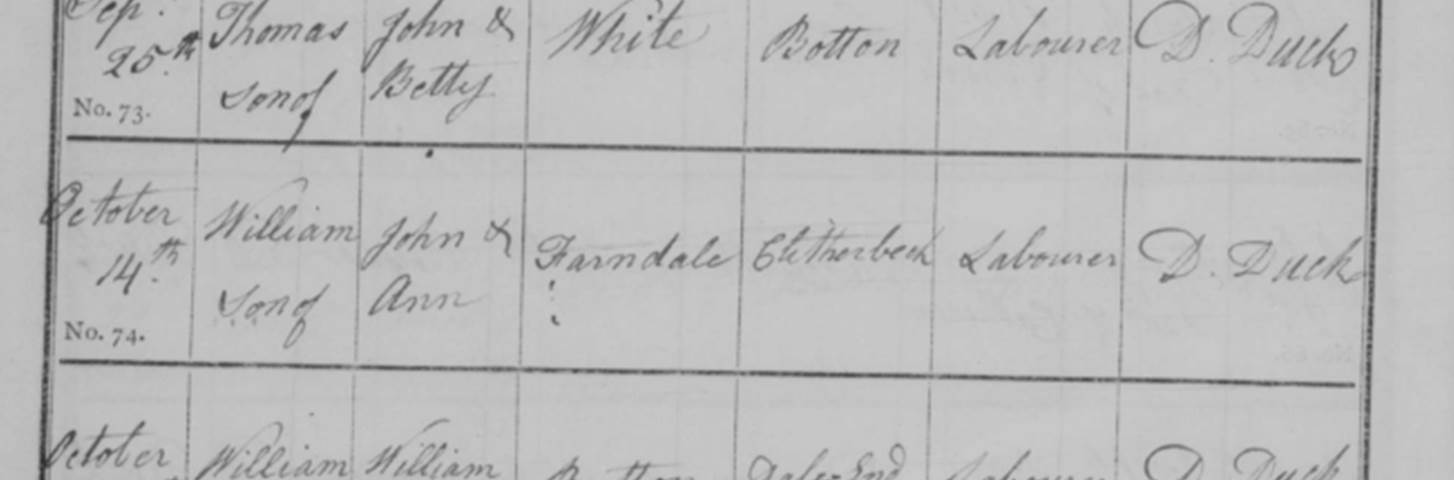 Sep.
25.th
No. 73.
Thomas
son of
John &
Betty
White
Botton
Labourer
D. Duck
October
14.th
No. 74.
William
Son of
John &
Ann
Farndale
Clitherbeck
Labourer
D. Duck
October
William
William
Dale End
Labourer
D. Duck